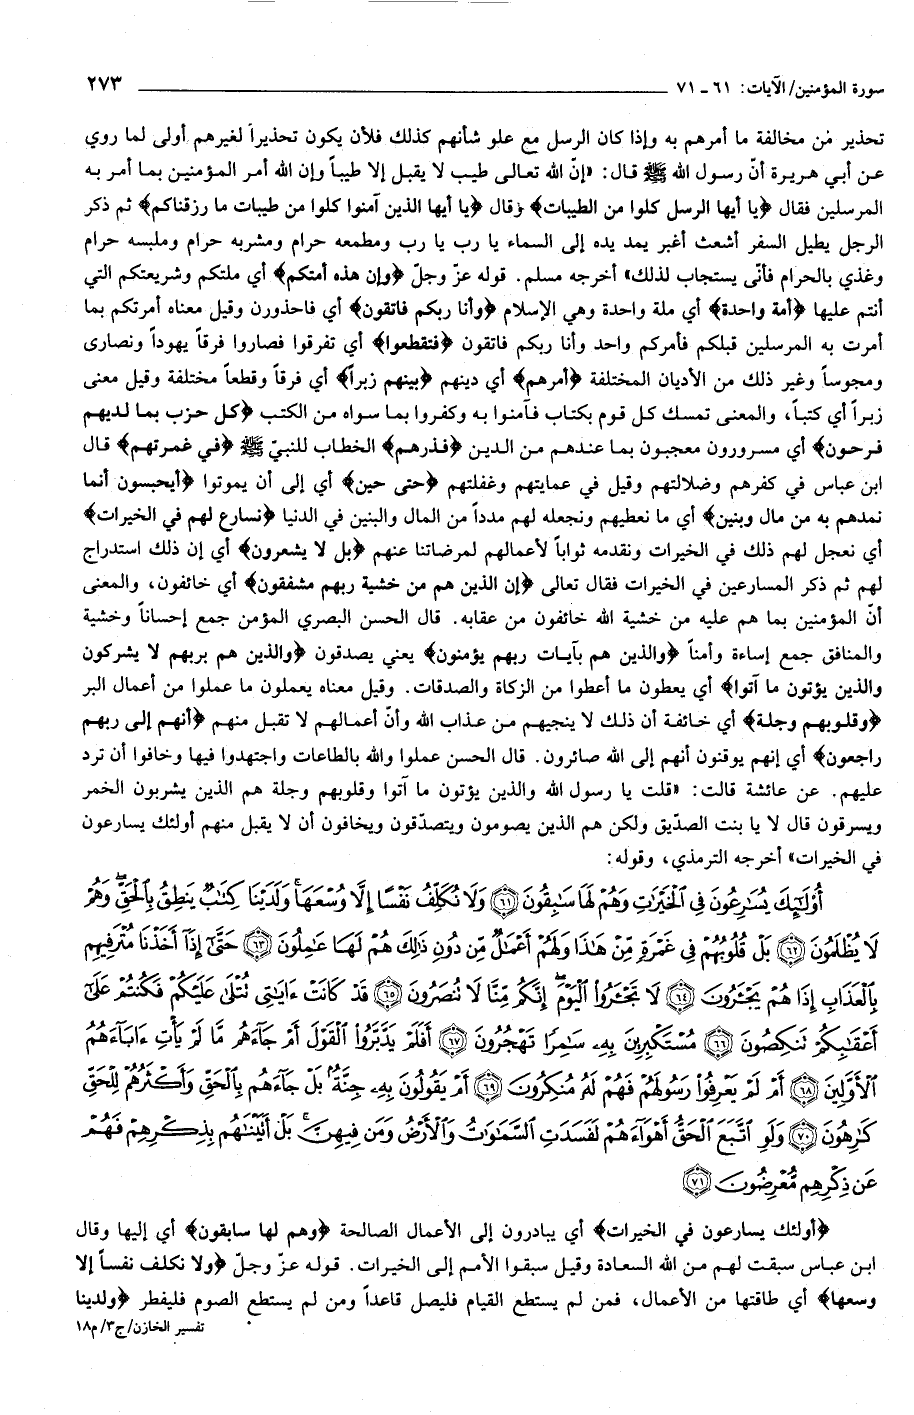 سورة المؤمنين/الآيات: ٦١ ـ ٧١ ٢٧٣
تحذير من مخالفة ما أمرهم به وإذا كان الرسل مع علو شأنهم كذلك فلأن يكون تحذيراً لغيرهم أولى لما روي
عن أبي هريرة أنّ رسول الله ﷺ قال: «إنّ الله تعالى طيب لا يقبل إلا طيباً وإن الله أمر المؤمنين بما أمر به
المرسلين فقال ﴿يا أيها الرسل كلوا من الطيبات﴾ وقال ﴿يا أيها الذين آمنوا كلوا من طيبات ما رزقناكم﴾ ثم ذكر
الرجل يطيل السفر أشعث أغبر يمد يده إلى السماء يا رب يا رب ومطعمه حرام ومشربه حرام وملبسه حرام
وغذي بالحرام فأنّى يستجاب لذلك» أخرجه مسلم. قوله عزّ وجلّ ﴿وإن هذه أمتكم﴾ أي ملتكم وشريعتكم التي
أنتم عليها ﴿أمة واحدة﴾ أي ملة واحدة وهي الإسلام ﴿وأنا ربكم فاتقون﴾ أي فاحذورن وقيل معناه أمرتكم بما
أمرت به المرسلين قبلكم فأمركم واحد وأنا ربكم فاتقون ﴿فتقطعوا﴾ أي تفرقوا فصاروا فرقاً يهوداً ونصارى
ومجوساً وغير ذلك من الأديان المختلفة ﴿أمرهم﴾ أي دينهم ﴿بينهم زبراً﴾ أي فرقاً وقطعاً مختلفة وقيل معنى
زبراً أي كتباً، والمعنى تمسك كل قوم بكتاب فآمنوا به وكفروا بما سواه من الكتب ﴿كل حزب بما لديهم
فرحون﴾ أي مسرورون معجبون بما عندهم من الدين ﴿فذرهم﴾ الخطاب للنبيّ ﷺ ﴿في غمرتهم﴾ قال
ابن عباس في كفرهم وضلالتهم وقيل في عمايتهم وغفلتهم ﴿حتى حين﴾ أي إلى أن يموتوا ﴿أيحبسون أنما
نمدهم به من مال وبنين﴾ أي ما نعطيهم ونجعله لهم مدداً من المال والبنين في الدنيا ﴿نسارع لهم في الخيرات﴾
أي نعجل لهم ذلك في الخيرات ونقدمه ثواباً لأعمالهم لمرضاتنا عنهم ﴿بل لا يشعرون﴾ أي إن ذلك استدراج
لهم ثم ذكر المسارعين في الخيرات فقال تعالى ﴿إن الذين هم من خشية ربهم مشفقون﴾ أي خائفون، والمعنى
أنّ المؤمنين بما هم عليه من خشية الله خائفون من عقابه. قال الحسن البصري المؤمن جمع إحساناً وخشية
والمنافق جمع إساءة وأمناً ﴿والذين هم بآيات ربهم يؤمنون﴾ يعني يصدقون ﴿والذين هم بربهم لا يشركون
والذين يؤتون ما آتوا﴾ أي يعطون ما أعطوا من الزكاة والصدقات. وقيل معناه يعملون ما عملوا من أعمال البر
﴿وقلوبهم وجلة﴾ أي خائفة أن ذلك لا ينجيهم من عذاب الله وأنّ أعمالهم لا تقبل منهم ﴿أنهم إلى ربهم
راجعون﴾ أي إنهم يوقنون أنهم إلى الله صائرون. قال الحسن عملوا والله بالطاعات واجتهدوا فيها وخافوا أن ترد
عليهم. عن عائشة قالت: «قلت يا رسول الله والذين يؤتون ما آتوا وقلوبهم وجلة هم الذين يشربون الخمر
ويسرقون قال لا يا بنت الصدّيق ولكن هم الذين يصومون ويتصدّقون ويخافون أن لا يقبل منهم أولئك يسارعون
في الخيرات» أخرجه الترمذي، وقوله:
أُوْلَٰٓئِكَ يُسَٰرِعُونَ فِي ٱلْخَيْرَٰتِ وَهُمْ لَهَا سَٰبِقُونَ ﴿٦١﴾ وَلَا نُكَلِّفُ نَفْسًا إِلَّا وُسْعَهَا ۖ وَلَدَيْنَا كِتَٰبٌ يَنطِقُ بِٱلْحَقِّ ۚ وَهُمْ
لَا يُظْلَمُونَ ﴿٦٢﴾ بَلْ قُلُوبُهُمْ فِي غَمْرَةٍ مِّنْ هَٰذَا وَلَهُمْ أَعْمَٰلٌ مِّن دُونِ ذَٰلِكَ هُمْ لَهَا عَٰمِلُونَ ﴿٦٣﴾ حَتَّىٰٓ إِذَآ أَخَذْنَا مُتْرَفِيهِم
بِٱلْعَذَابِ إِذَا هُمْ يَجْـَٔرُونَ ﴿٦٤﴾ لَا تَجْـَٔرُوا۟ ٱلْيَوْمَ ۖ إِنَّكُم مِّنَّا لَا تُنصَرُونَ ﴿٦٥﴾ قَدْ كَانَتْ ءَايَٰتِي تُتْلَىٰ عَلَيْكُمْ فَكُنتُمْ عَلَىٰٓ
أَعْقَٰبِكُمْ تَنكِصُونَ ﴿٦٦﴾ مُسْتَكْبِرِينَ بِهِۦ سَٰمِرًا تَهْجُرُونَ ﴿٦٧﴾ أَفَلَمْ يَدَّبَّرُوا۟ ٱلْقَوْلَ أَمْ جَآءَهُم مَّا لَمْ يَأْتِ ءَابَآءَهُمُ
ٱلْأَوَّلِينَ ﴿٦٨﴾ أَمْ لَمْ يَعْرِفُوا۟ رَسُولَهُمْ فَهُمْ لَهُۥ مُنكِرُونَ ﴿٦٩﴾ أَمْ يَقُولُونَ بِهِۦ جِنَّةٌۢ ۚ بَلْ جَآءَهُم بِٱلْحَقِّ وَأَكْثَرُهُمْ لِلْحَقِّ
كَٰرِهُونَ ﴿٧٠﴾ وَلَوِ ٱتَّبَعَ ٱلْحَقُّ أَهْوَآءَهُمْ لَفَسَدَتِ ٱلسَّمَٰوَٰتُ وَٱلْأَرْضُ وَمَن فِيهِنَّ ۚ بَلْ أَتَيْنَٰهُم بِذِكْرِهِمْ فَهُمْ
عَن ذِكْرِهِم مُّعْرِضُونَ ﴿٧١﴾
﴿أولئك يسارعون في الخيرات﴾ أي يبادرون إلى الأعمال الصالحة ﴿وهم لها سابقون﴾ أي إليها وقال
ابن عباس سبقت لهم من الله السعادة وقيل سبقوا الأمم إلى الخيرات. قوله عزّ وجلّ ﴿ولا نكلف نفساً إلا
وسعها﴾ أي طاقتها من الأعمال، فمن لم يستطع القيام فليصل قاعداً ومن لم يستطع الصوم فليفطر ﴿ولدينا
تفسير الخازن/ج٣/م١٨